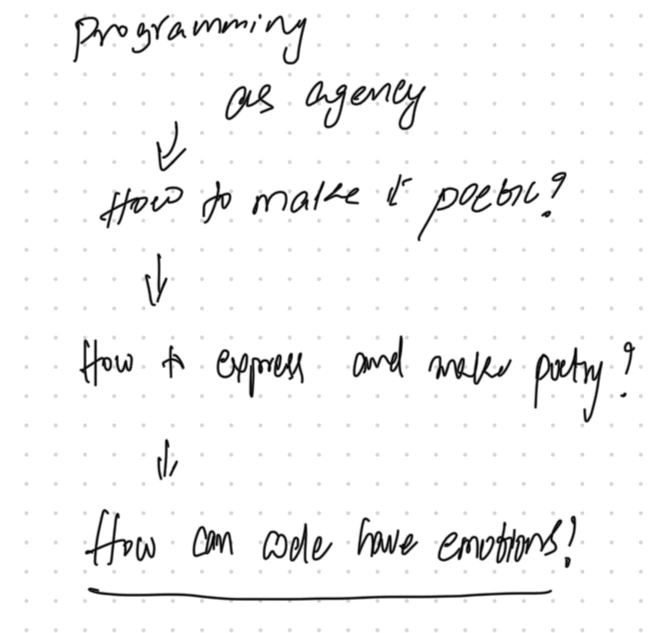 programming
as agency
How to make it poetic?
How to express and make poetry?
How can code have emotions?